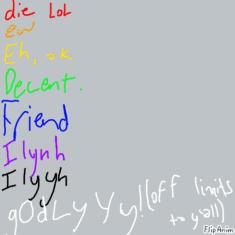 die LOL
ew
Eh, ok
Decent.
Friend
Ilynh
Ilyyh
gOdLy Yy!(off limits
to y'all)
FlipAnim